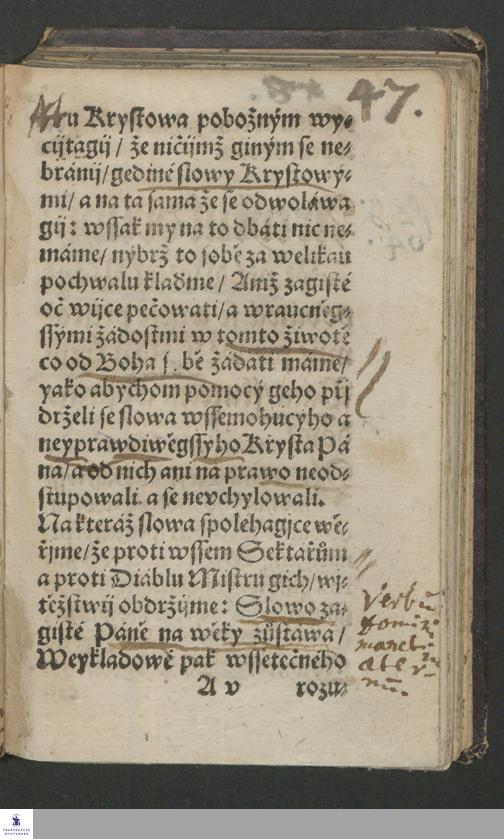 47.
Mu Krystowa pobožným wy-
cijtagij / že ničijmž giným se ne-
bránij / gediné slowy Krystowý-
mi / a na ta sama že se odwoláwa
gij: wssak my na to dbáti nic ne-
máme / nýbrž to sobě za welikau
pochwalu klaďme / Aniž zagisté
oč wijce pečowati / a wraucněg-
ssými žádostmi w tomto žiwotě
co od Boha s. bě žádati máme /
yako abychom pomocý geho při
drželi se slowa wssemohúcýho a
neyprawdiwěgssýho Krysta Pá
na / a od nich ani na prawo neod-
stupowali a se nevchylowali.
Na kteráž slowa spoléhagjce wě-
řjme / že proti wssem Sektařům
a proti Diáblu Mistru gich / wj-
těžstwij obdržijme: Slowo za-
gisté Páně na wěky zůstáwa /
Weykladowé pak wssetečného
A v rozu-
Verbū
Domi-
ni
manet
in
aeter-
nū.
FRANCKESCHE
STIFTUNGEN